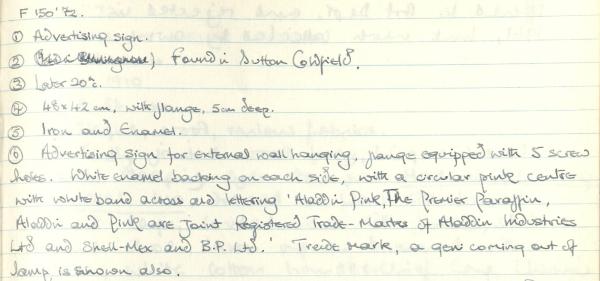 F 150'72.
① Advertising sign.
② Found in Sutton Coldfield.
③ Later 20thc.
④ 48 x 42 cm, with flange, 5cm deep.
⑤ Iron and Enamel.
⑥ Advertising sign for external wall hanging, flange equipped with 5 screw
holes. White enamel backing on each side, with a circular pink centre
with white band across and lettering 'Aladdin Pink, The Premier Paraffin,
Aladdin and Pink are Joint Registered Trade-Marks of Aladdin Industries
Ltd and Shell-Mex and B.P. Ltd.' Trade Mark, a gen coming out of
lamp, is shown also.